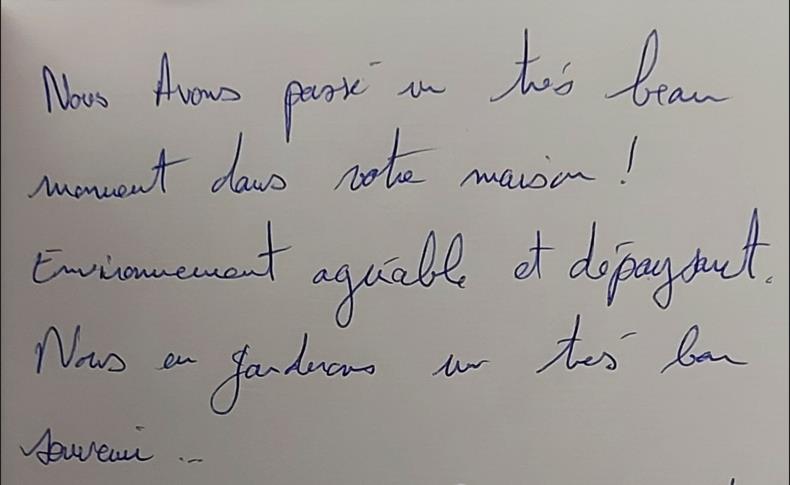 Nous Avons passé un très beau
moment dans votre maison !
Environnement agréable et dépaysant.
Nous en garderons un très bon
souvenir ...